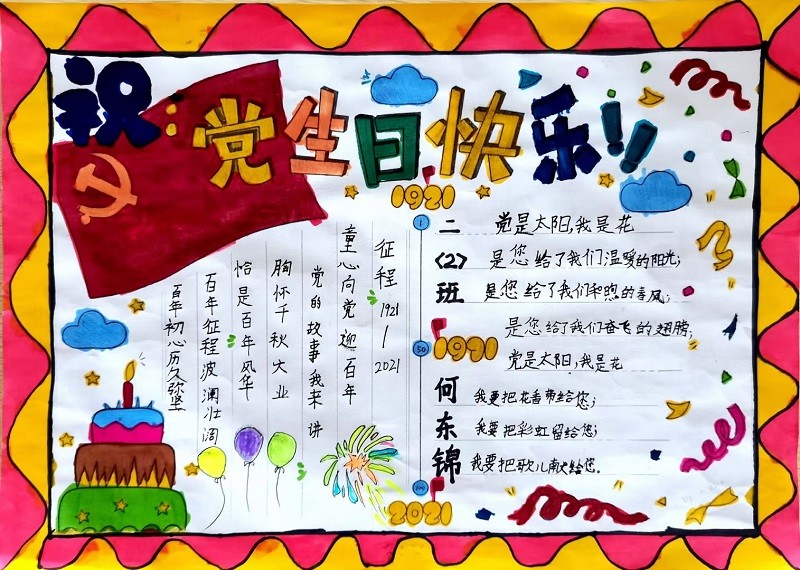 祝:党生日快乐!!
1921
征程 1921—2021
童心向党迎百年
党的故事我来讲
胸怀千秋大业
恰是百年风华
百年征程波澜壮阔
百年初心历久弥坚
1
50
100
1971
2021
二
(2)
班
何
东
锦
党是太阳,我是花
是您给了我们温暖的阳光;
是您给了我们和煦的春风;
是您给了我们奋飞的翅膀;
党是太阳,我是花
我要把花香带给您;
我要把彩虹留给您;
我要把歌儿献给您。